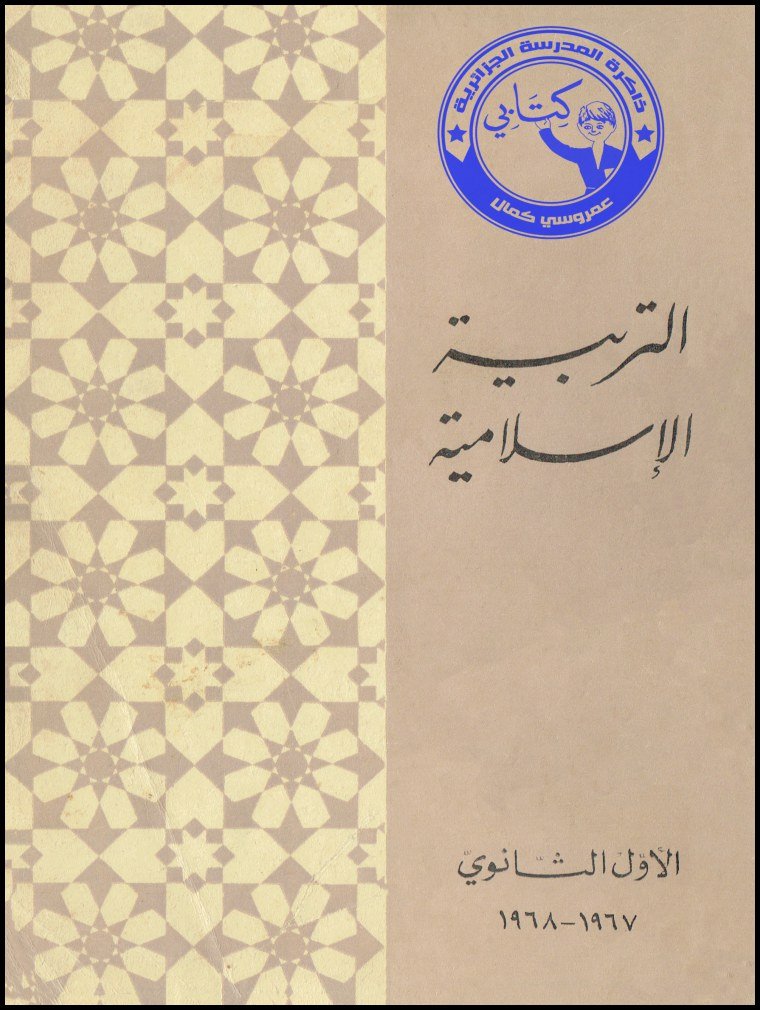 ذاكرة المدرسة الجزائرية
كِتَابِي
عمروسي كمال
التربية
الإسلامية
الأوّل الثّانويّ
١٩٦٧-١٩٦٨